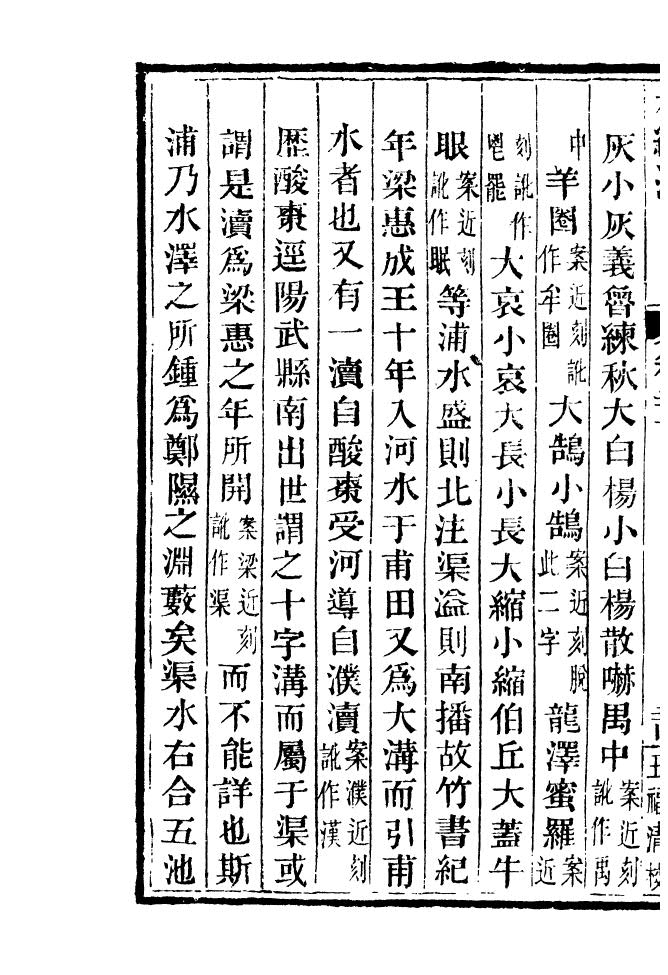 灰小灰義魯練秋大白楊小白楊散嚇禺中案近刻訛作禹
中羊圈案近刻訛作牟圈大鵠小鵠案近刻脫此二字龍澤蜜羅案近
刻訛作罷大哀小哀大長小長大縮小縮伯丘大蓋牛
眼案近刻訛作眠等浦水盛則北注渠溢則南播故竹書紀
年梁惠成王十年入河水于甫田又為大溝而引甫
水者也又有一瀆自酸棗受河導自濮瀆案濮近刻訛作漢
歷酸棗逕陽武縣南出世謂之十字溝而屬于渠或
謂是瀆為梁惠之年所開案梁近刻訛作渠而不能詳也斯
浦乃水澤之所鍾為鄭隰之淵藪矣渠水右合五池